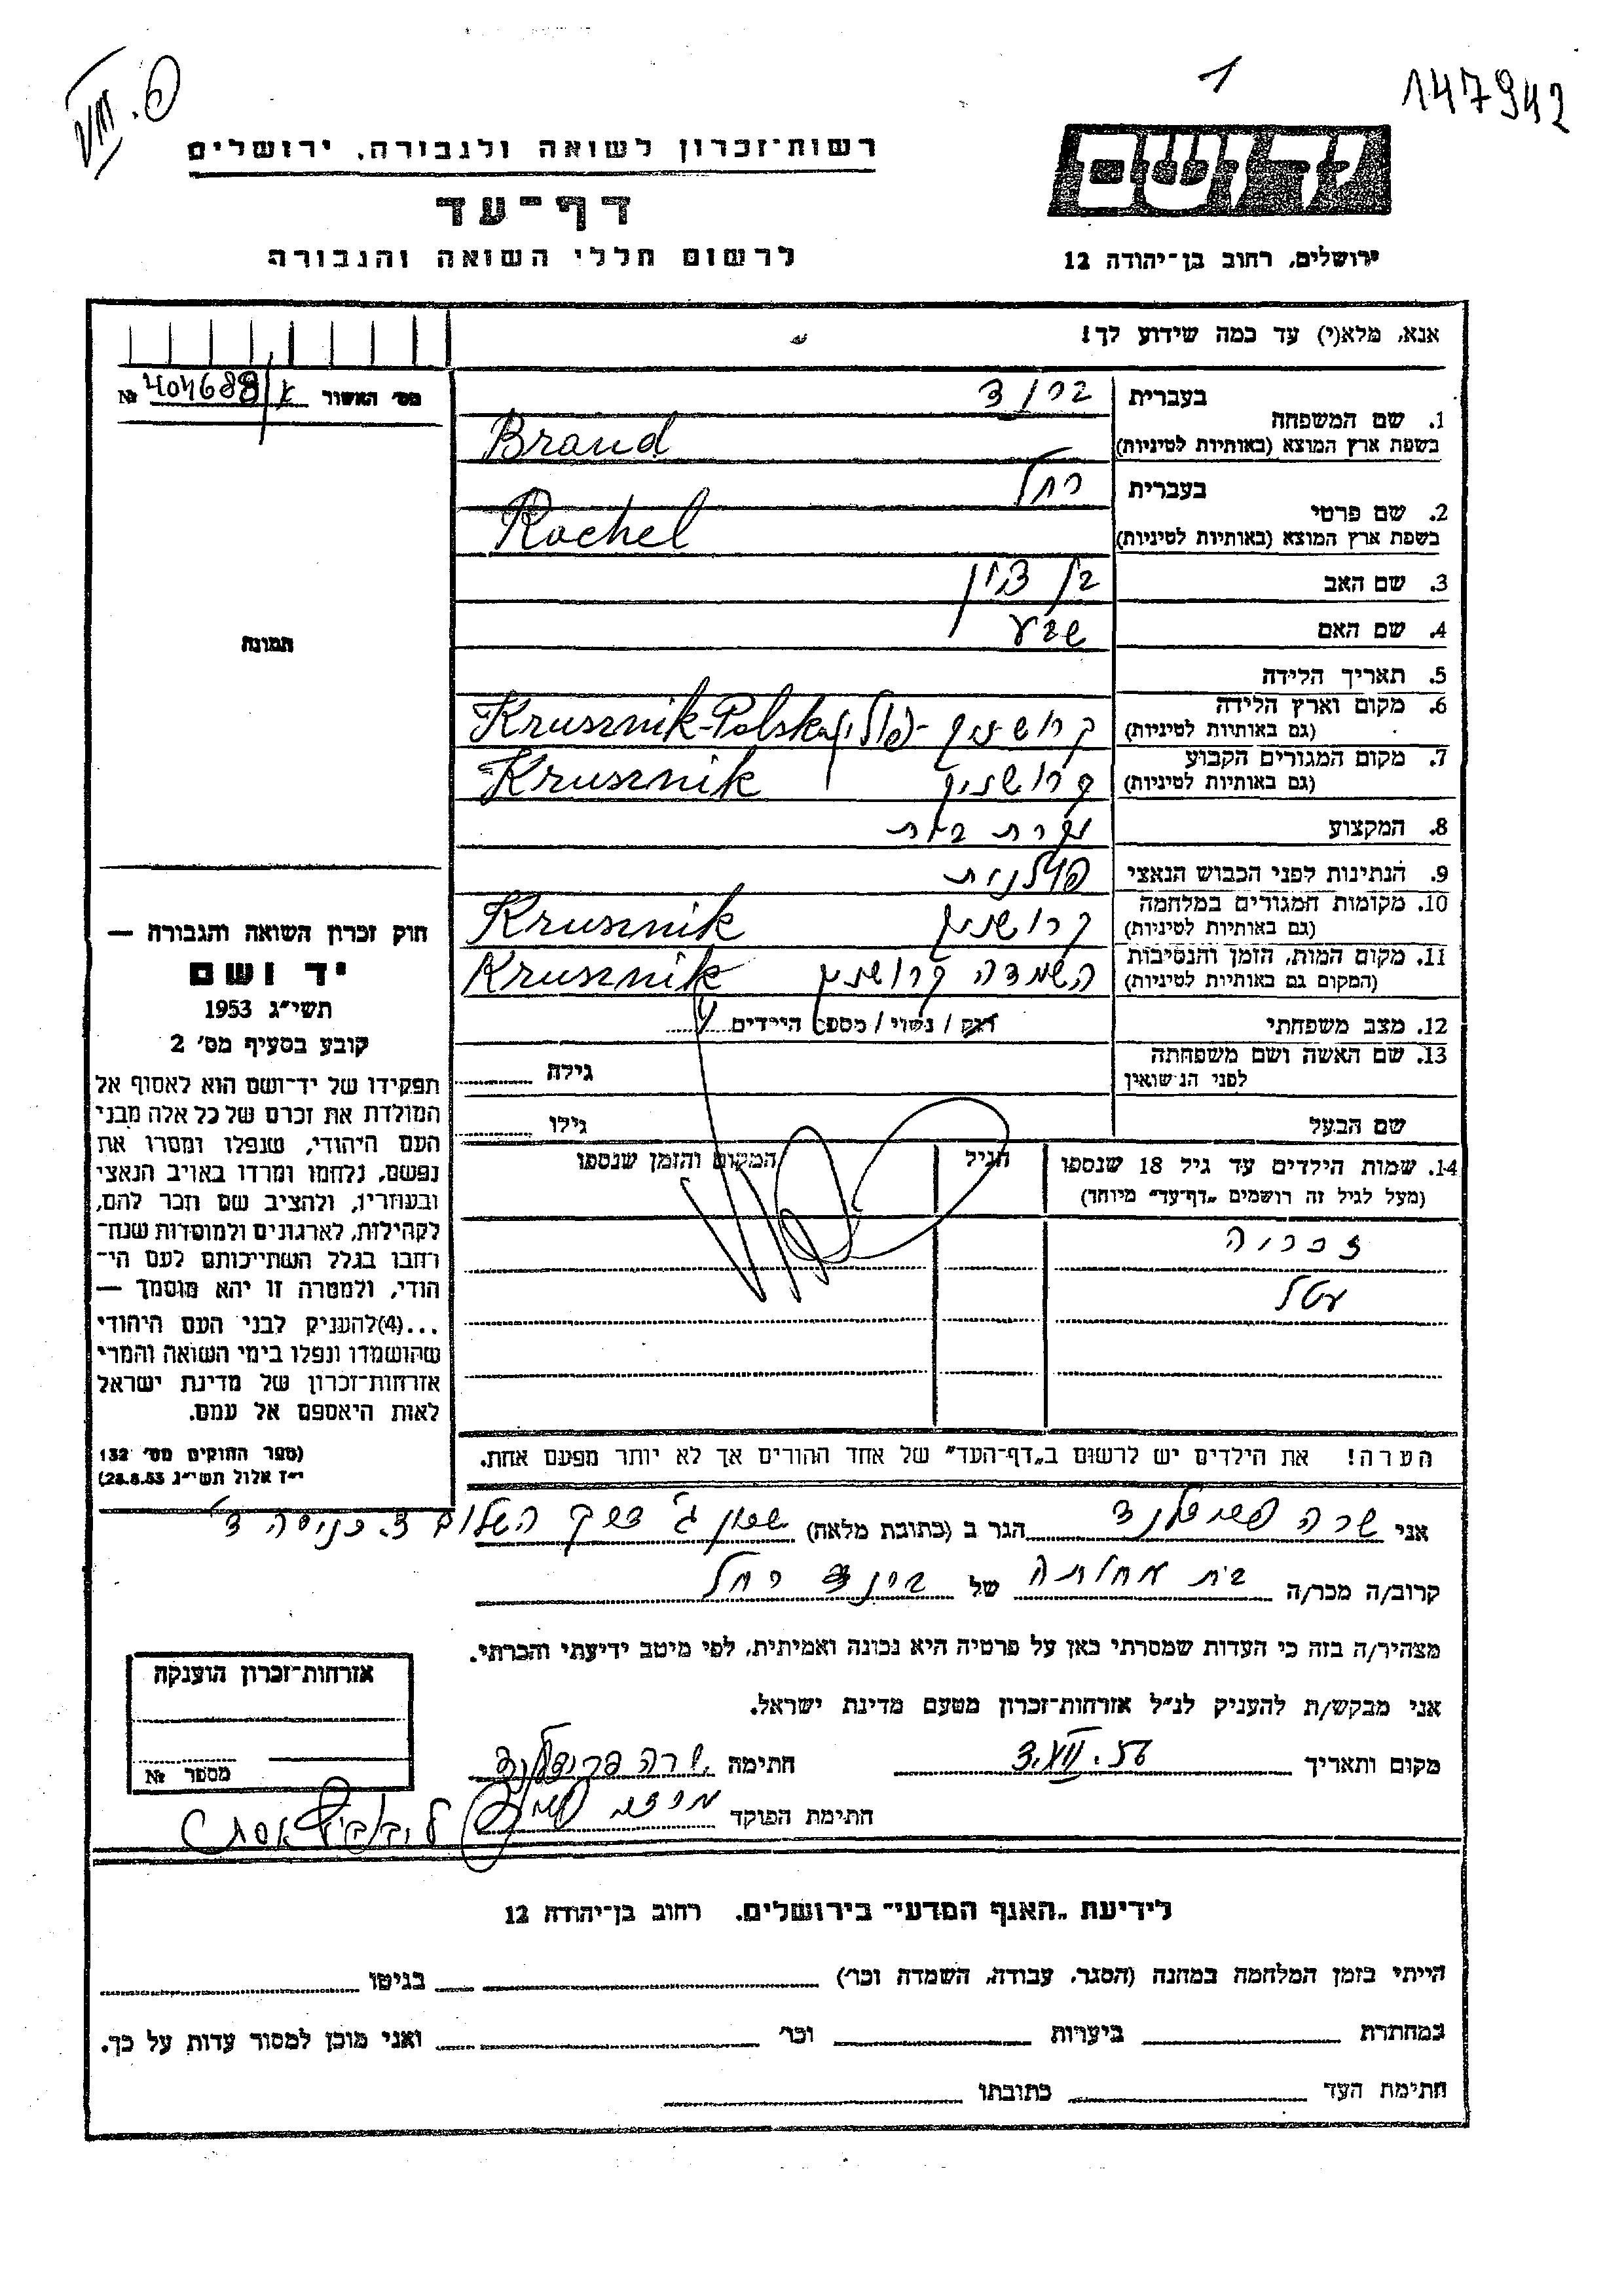 VIII.6
1
147942
רשות־זכרון לשואה ולגבורה, ירושלים
ידושם
דף־עד
לרשום חללי השואה והגבורה
ירושלים, רחוב בן־יהודה 12
אנא, מלא(י) עד כמה שידוע לך!
מס' האשור 404688/א №
1. שם המשפחה
בעברית ברנד
בשפת ארץ המוצא (באותיות לטיניות) Brand
2. שם פרטי
בעברית רחל
בשפת ארץ המוצא (באותיות לטיניות) Rachel
3. שם האב בן ציון
4. שם האם שבע
תמונה
5. תאריך הלידה
6. מקום וארץ הלידה
(גם באותיות לטיניות) קרושניק - פולין Krusznik-Polska
7. מקום המגורים הקבוע
(גם באותיות לטיניות) קרושניק Krusznik
8. המקצוע עקרת בית
9. הנתינות לפני הכבוש הנאצי פולנית
10. מקומות המגורים במלחמה
(גם באותיות לטיניות) קרושניק Krusznik
11. מקום המות, הזמן והנסיבות
(המקום גם באותיות לטיניות) השמדה קרושניק Krusznik
12. מצב משפחתי רווק / נשוי / מספר הילדים 4
13. שם האשה ושם משפחתה
לפני הנשואין גילה
שם הבעל גילו
14. שמות הילדים עד גיל 18 שנספו הגיל המקום והזמן שנספו
(מעל לגיל זה רושמים „דף־עד" מיוחד)
זכריה
עטל
הערה! את הילדים יש לרשום ב„דף־העד" של אחד ההורים אך לא יותר מפעם אחת.
חוק זכרון השואה והגבורה —
יד ושם
תשי"ג 1953
קובע בסעיף מס' 2
תפקידו של יד־ושם הוא לאסוף אל
המולדת את זכרם של כל אלה מבני
העם היהודי, שנפלו ומסרו את
נפשם, נלחמו ומרדו באויב הנאצי
ובעוזריו, ולהציב שם וזכר להם,
לקהילות, לארגונים ולמוסדות שנח־
רבו בגלל השתייכותם לעם הי־
הודי, ולמטרה זו יהא מוסמך —
...(4)להעניק לבני העם היהודי
שהושמדו ונפלו בימי השואה והמרי
אזרחות־זכרון של מדינת ישראל
לאות היאספם אל עמם.
(ספר החוקים מס' 132
י"ז אלול תשי"ג 28.8.53)
אני שרה הגר ב (כתובת מלאה) שכון ג' השלום כניסה ד'
קרוב/ה מכר/ה בת אחותה של ברנד רחל
מצהיר/ה בזה כי העדות שמסרתי כאן על פרטיה היא נכונה ואמיתית, לפי מיטב ידיעתי והכרתי.
אני מבקש/ת להעניק לנ"ל אזרחות־זכרון מטעם מדינת ישראל.
מקום ותאריך 3.VII.56 חתימה שרה
חתימת הפוקד
אזרחות־זכרון הוענקה
מספר №
לידיעת „האגף המדעי" בירושלים, רחוב בן־יהודה 12
הייתי בזמן המלחמה במחנה (הסגר, עבודה, השמדה וכר') בגיטו
במחתרת ביערות וכר' ואני מוכן למסור עדות על כך.
חתימת העד כתובתו